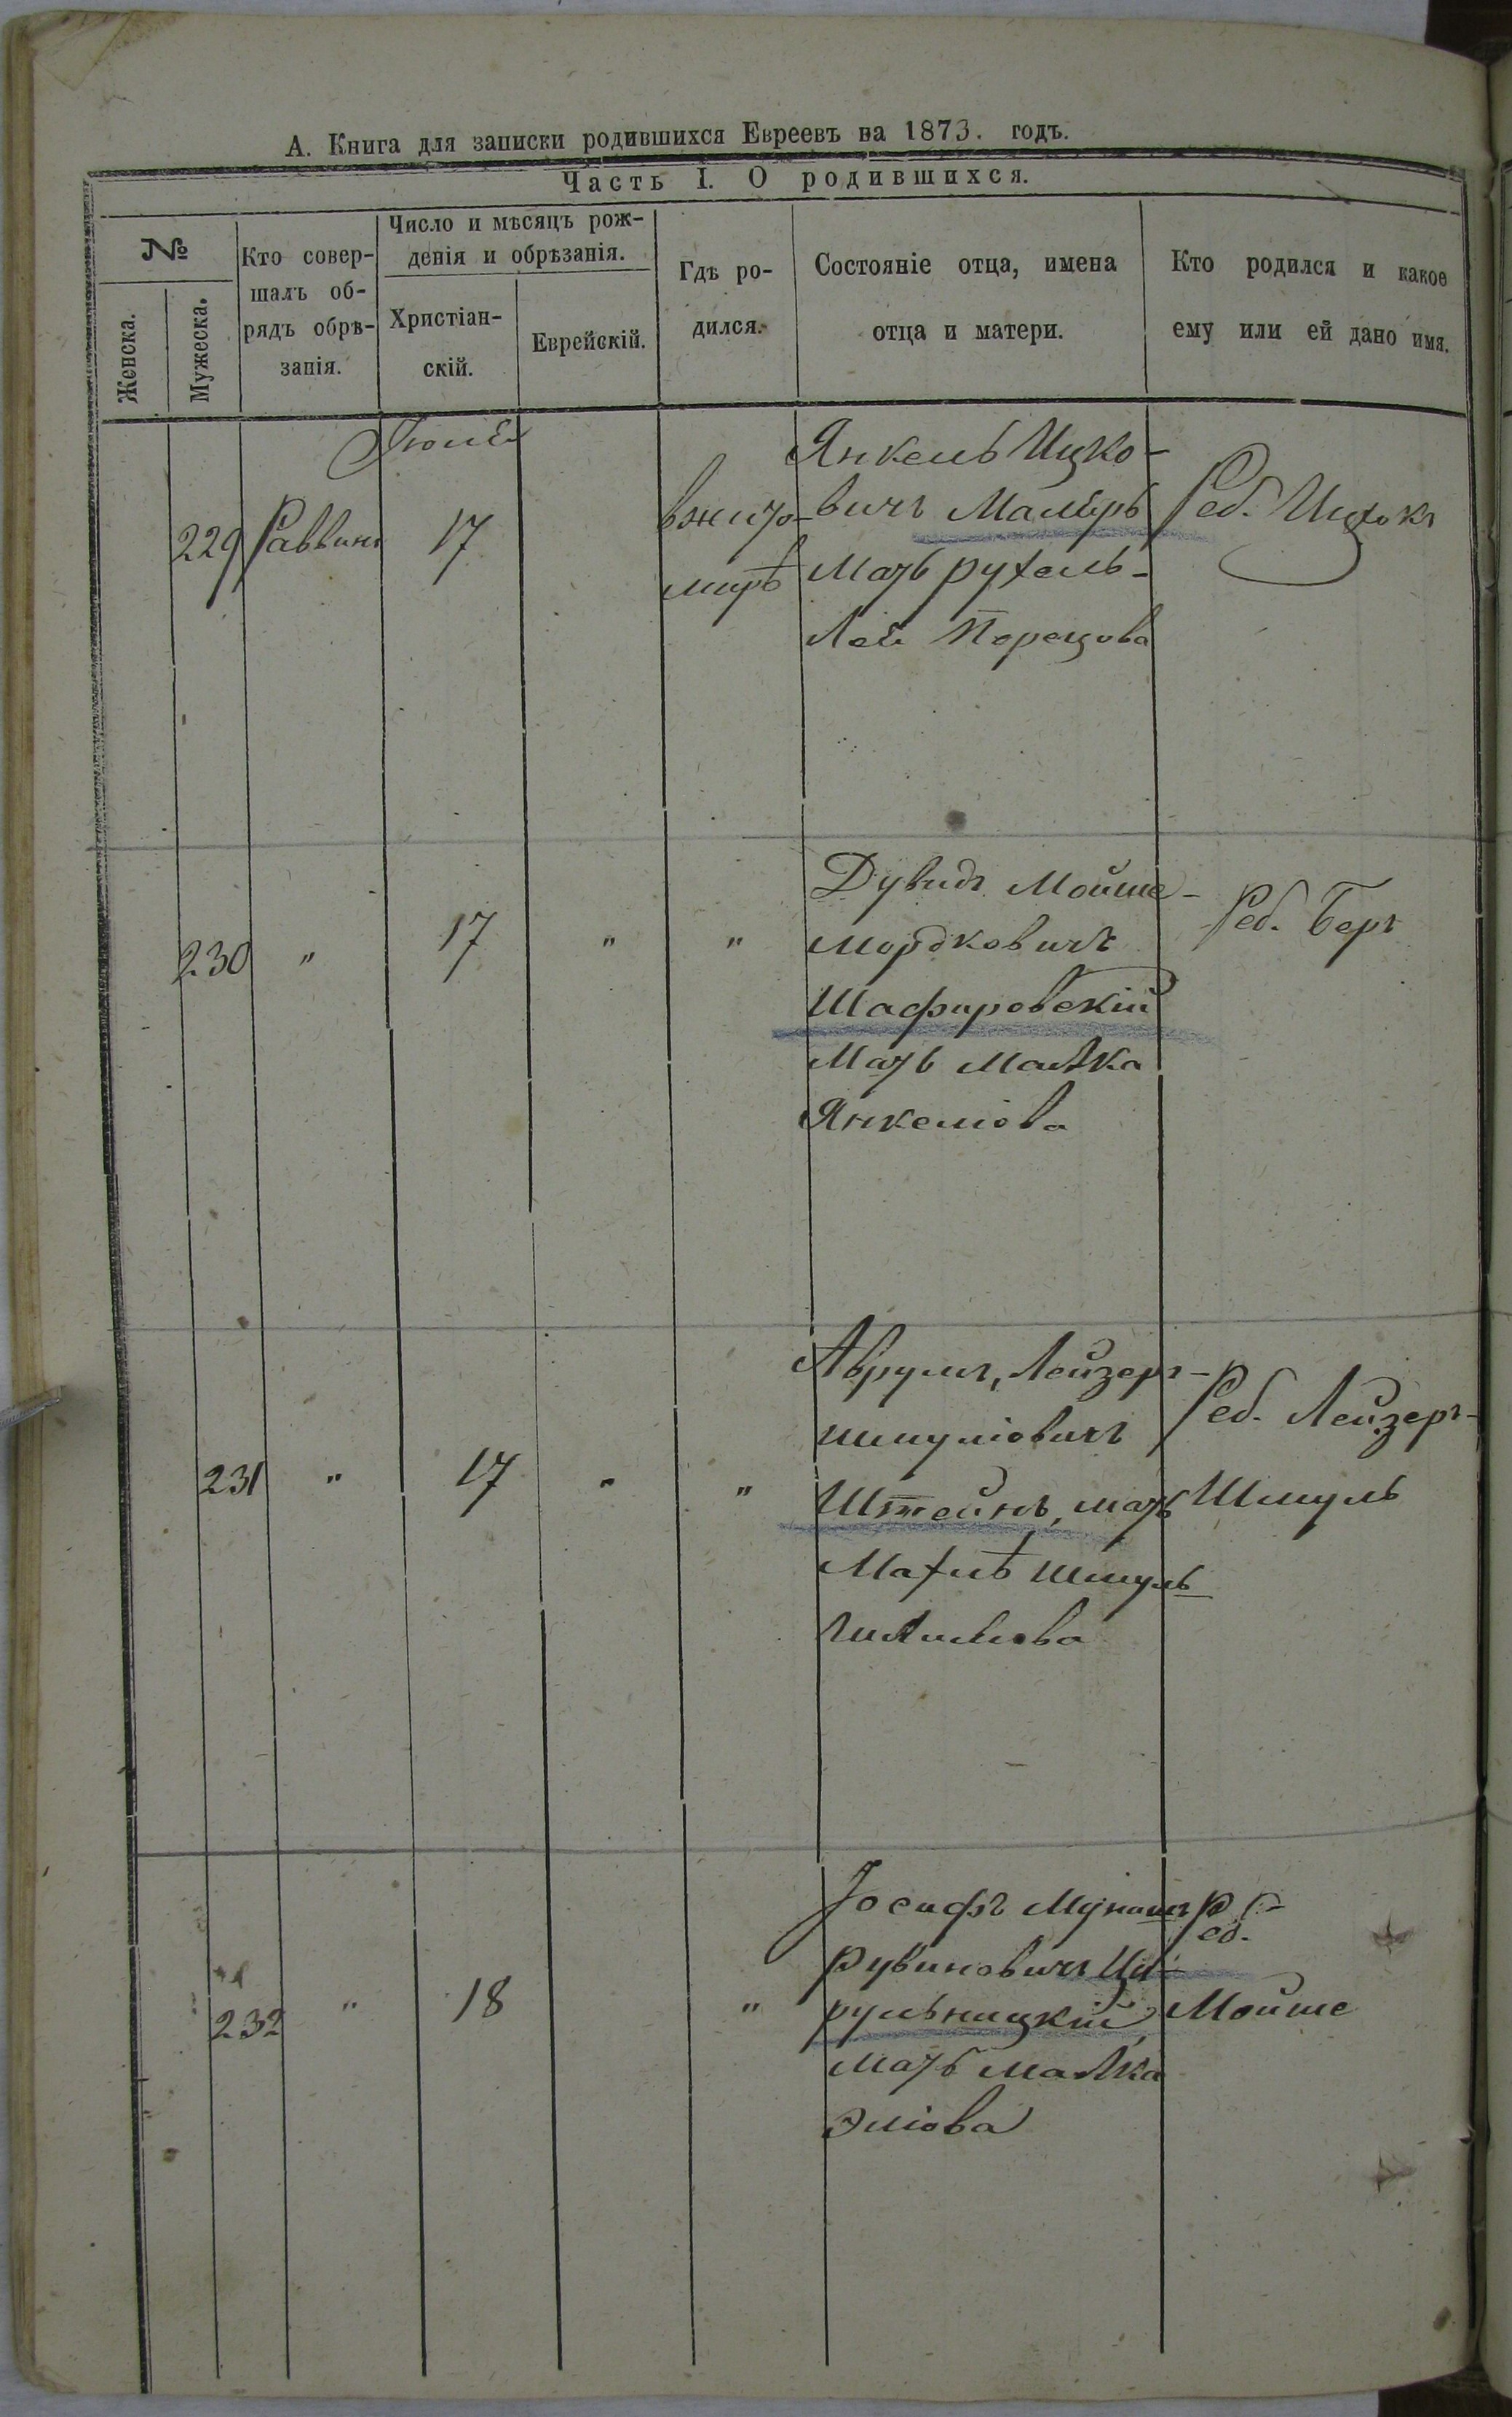 А. Книга для записки родившихся Евреевъ на 1873. годъ.
Часть I. О родившихся.
№
Женска.
Мужеска.
Кто совер-
шалъ об-
рядъ обрѣ-
занія.
Число и мѣсяцъ рож-
денія и обрѣзанія.
Христіан-
скій.
Еврейскій.
Гдѣ ро-
дился.
Состояніе отца, имена
отца и матери.
Кто родился и какое
ему или ей дано имя.
229
Раввинъ
17
вжито-
мирѣ
Янкель Ицко-
вичъ Малѣръ
Мать рухель-
Лея Перецова
Реб. Ицхокъ
230 " 17 " "
Дувидъ Мойше-
мордковичъ
Шафировскій
Мать Малка
Янкеліова
Реб. Беръ
231 " 17 " "
Аврумъ, Лейзеръ-
шмуліовичъ
Штейнъ, мать
Махлѣ Шмуль
Реб. Лейзеръ-
Шмуль
232 " 18 "
Іосифъ
рувиновичъ Ци-
рульницкій,
мать малка
Эліова
Реб.
Мойше